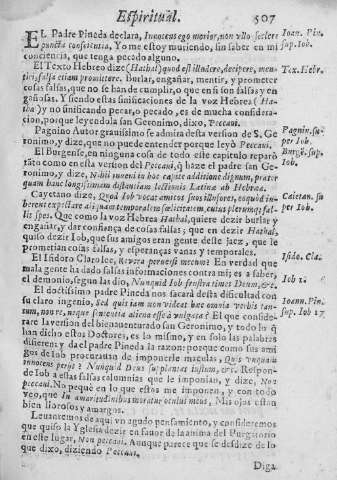 Espiritual. 507
EL Padre Pineda declara, Innocens ego morior, non vllo scelere
puncta conscientia, Yo me estoy muriendo, sin saber en mi
conciencia, que tenga pecado alguno.
Ioan. Pin.
sup. Iob.
El Texto Hebreo dize (Hathal) quod est illudere, decipere, men-
tiri, falsa etiam promittere. Burlar, engañar, mentir, y prometer
cosas falsas, que no se han de cumplir, o que si son falsas y en-
gañosas. Y siendo estas sinificaciones de la voz Hebrea (Ha-
thal) y no sinificando pecar, o pecado, es de mucha considera-
cion, porque leyendola san Geronimo, dixo, Peccani.
Tex. Hebr.
Pagnino Autor grauissimo se admira desta version de S. Ge-
ronimo, y dize, que no puede entender porque leyò Peccaui.
Pagnin. su-
per Iob.
El Burgense, en ninguna cosa de todo este capitulo reparò
tanto como en esta version del Peccaui, que haze el padre san Ge-
ronimo, y dize, Nihil inueni in hoc capite additione dignum, præter
quam hanc longissimam distantiam lectionis Latinæ ab Hebræa.
Burgẽ. sup.
Iob.
Cayetano dize, Quod Iob vocat amicos suos illusores, eo quòd in-
felicitatem, cuius plerumque fal-
lis spes. Que como la voz Hebrea Hathal, quiere dezir burlar y
engañar, y dar confiança de cosas falsas; que en dezir Hathal,
quiso dezir Iob, que sus amigos eran gente deste jaez, que le
prometian cosas falsas, y esperanças vanas y temporales.
Caietan. su
per Iob.
El Isidoro Clario lee, Reuera peruersè mecum? En verdad que
mala gente ha dado falsas informaciones contra mi; es a saber,
el demonio, segun las dio, Nunquid Iob frustra timet Deum, &c.
Isido. Cla.
Iob 1.
El doctissimo padre Pineda nos sacarà desta dificultad con
su claro ingenio, Sed quid iam non videat hæc omnia verbis tan-
tum, non re, neque sententia aliena esse à vulgata? El que conside-
rare la version del bienauenturado san Geronimo, y todo lo que
han dicho estos Doctores, es lo mismo, y en solo las palabras
difieren; y da el padre Pineda la razon: porque como sus ami-
gos de Iob procurauan de imponerle maculas, Quis vnquam
innocens perijt? Nunquid Deus supplantat iustum, &c. Respon-
de Iob a estas falsas calumnias que le imponian, y dize, Non
peccaui. No pequè en lo que estos me imponen, y con todo
veo, que In amaritudinibus moratur oculus meus, Mis ojos estan
bien llorosos y amargos.
Ioann. Pin.
sup. Iob 17
Leuantemos de aqui vn agudo pensamiento, y consideremos
que quiso la Yglesia dezir en fauor de la anima del Purgatorio
en este lugar, Non peccaui. Aunque parece que se desdize de lo
que dixo, diziendo Peccaui.
Diga